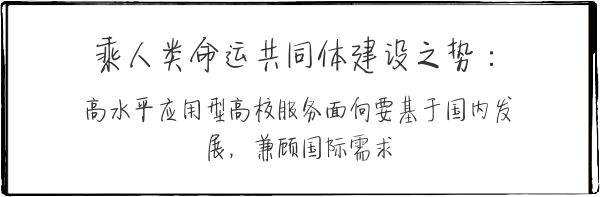 乘人类命运共同体建设之势：
高水平应用型高校服务面向要基于国内发
展，兼顾国际需求